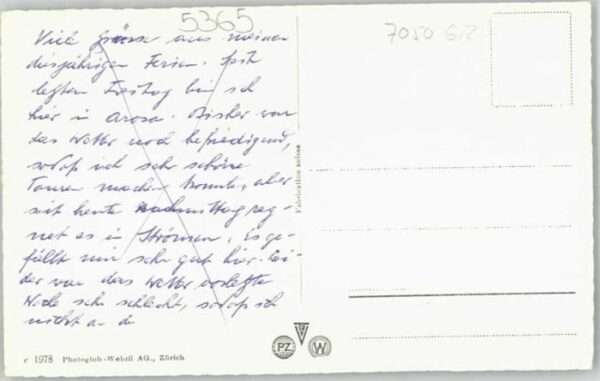 5365
7050 GR
Viele Grüsse aus meinen
diesjährigen Ferien. Seit
letzten Freitag bin ich
hier in Arosa. Bisher war
das Wetter noch befriedigend,
sodaß ich sehr schöne
Touren machen konnte, aber
seit heute Nachmittag reg-
net es in Strömen. Es ge-
fällt mir sehr gut hier. Lei-
der war das Wetter vorletzte
Woche sehr schlecht, sodaß ich
nicht an d
Fabrication suisse
c 1978 Photoglob-Wehrli AG., Zürich
PZ
W